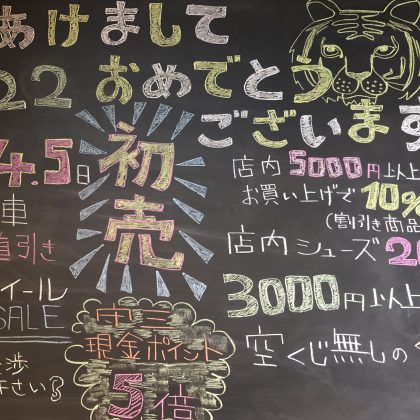 あけまして
22 おめでとう
ございます
4.5日
初売
車
値引き
イール
SALE
渉
さい
中三
現金ポイント
5倍
店内5000円以上
お買い上げで10%
(割引き商品
店内シューズ2
3000円以上
空くじ無しの